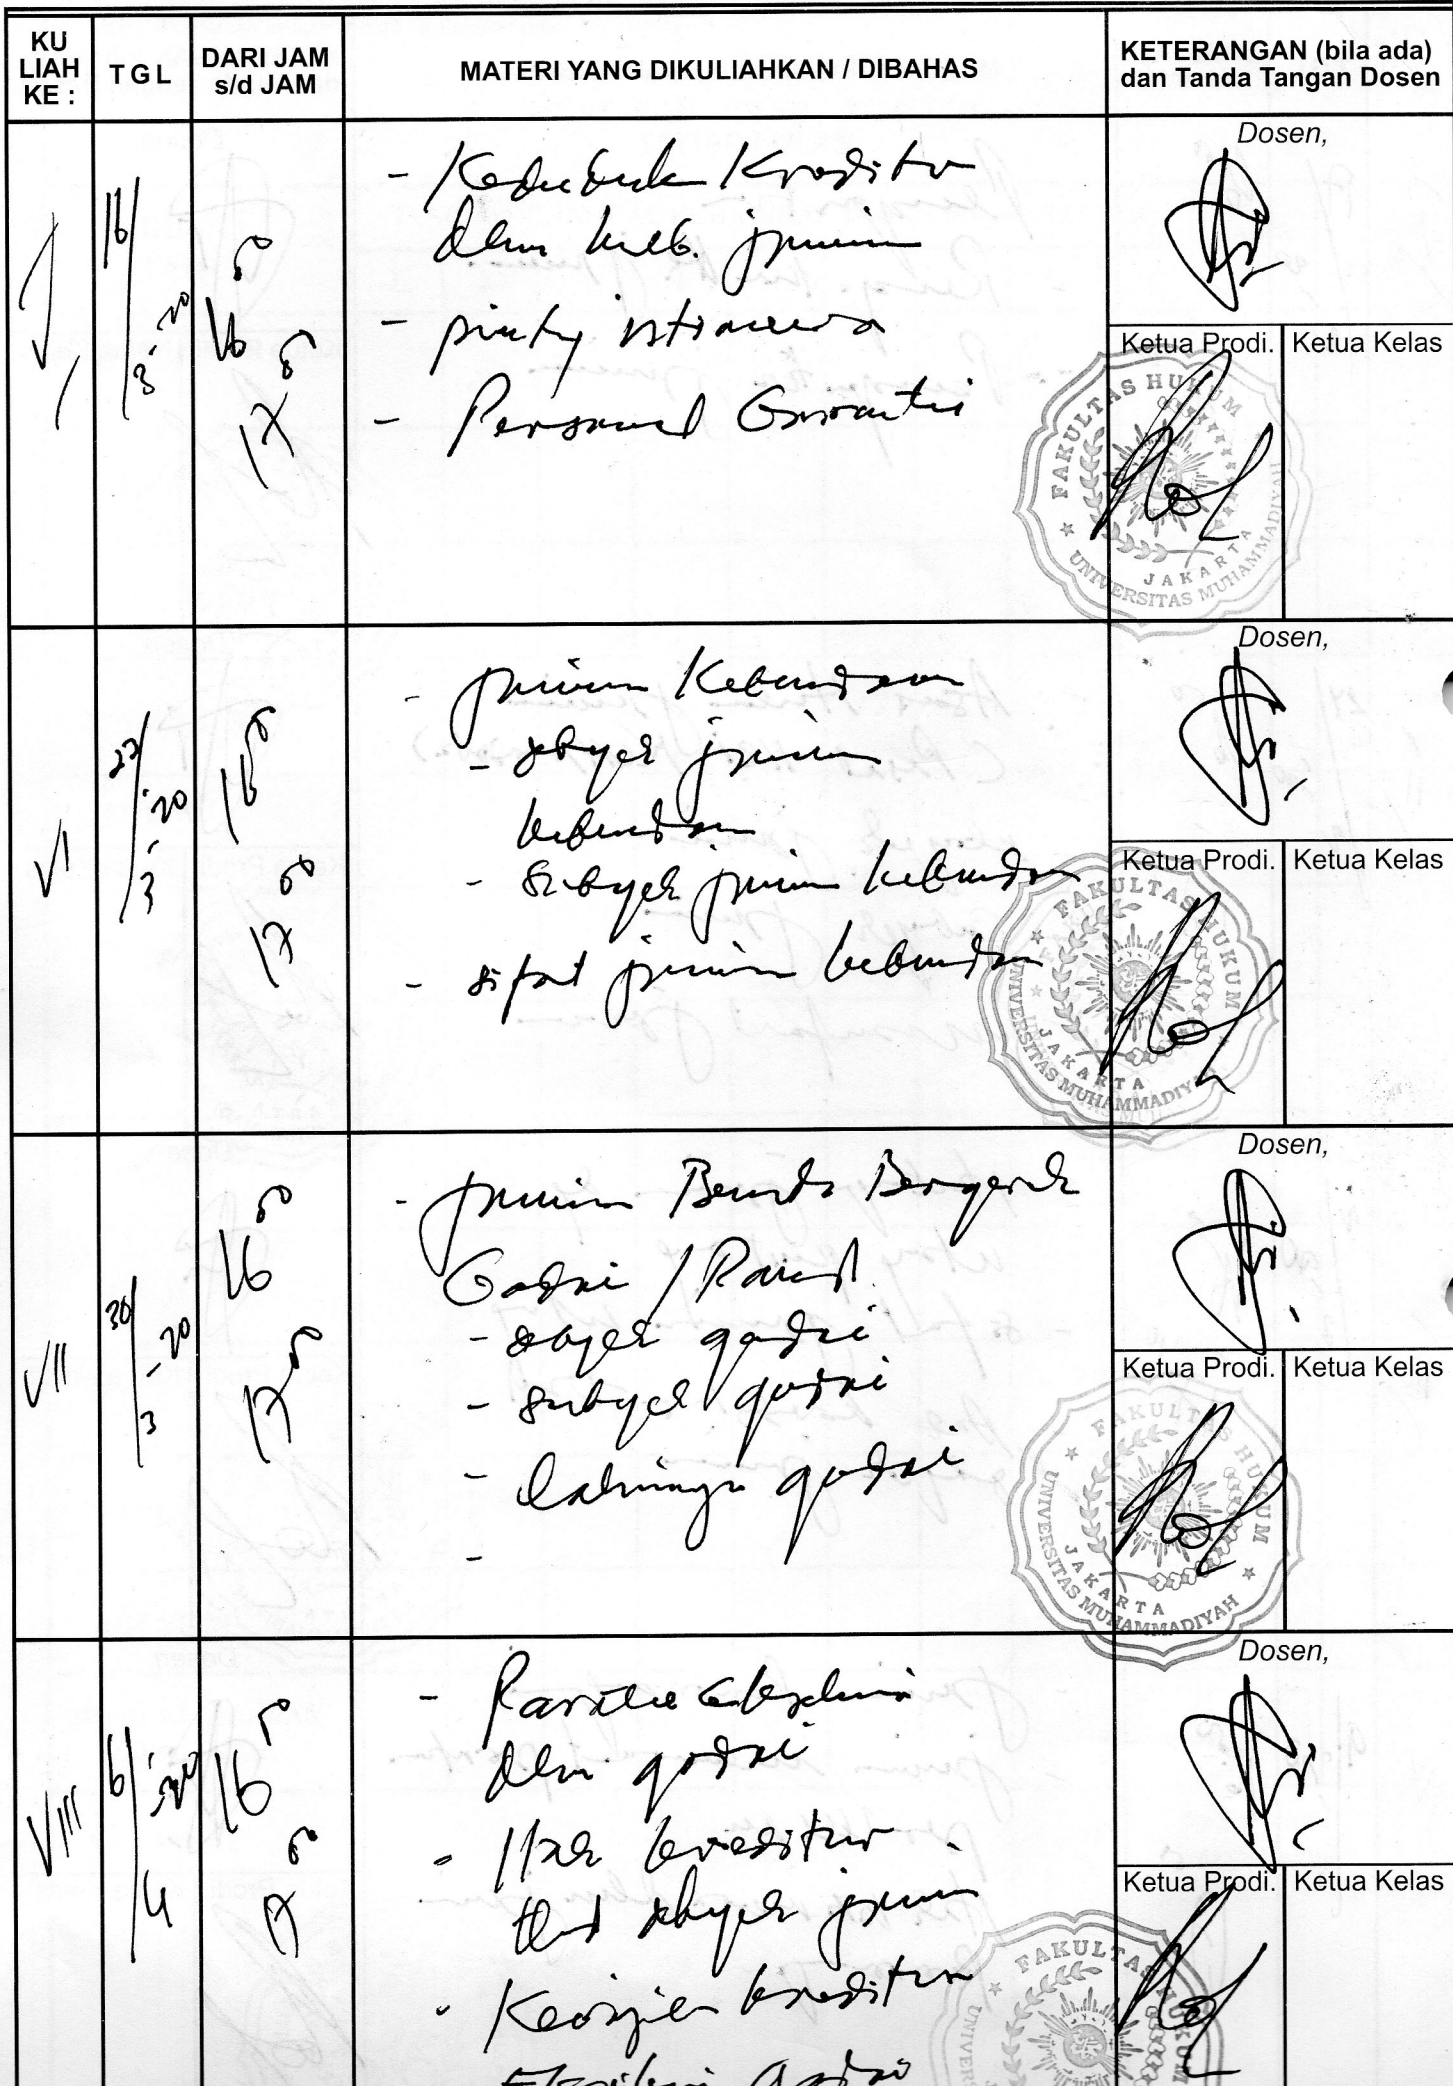 KU
LIAH
KE :
TGL
DARI JAM
s/d JAM
MATERI YANG DIKULIAHKAN / DIBAHAS
KETERANGAN (bila ada)
dan Tanda Tangan Dosen
V
16/3-20
16 00
17 00
- Kreditur
dlm hub.
-
- Personal
Dosen,
Ketua Prodi.
Ketua Kelas
FAKULTAS HUKUM
UNIVERSITAS MUHAMMADIYAH
JAKARTA
VI
3-20
16 00
17 00
- jaminan Kebendaan
- obyek jaminan
kebendaan
- subyek jaminan kebendaan
- sifat jaminan kebendaan
Dosen,
Ketua Prodi.
Ketua Kelas
FAKULTAS HUKUM
UNIVERSITAS MUHAMMADIYAH
JAKARTA
VII
30/3-20
16 00
17 00
- jaminan Benda Bergerak
Gadai / Pand
- obyek gadai
- subyek gadai
- gadai
-
Dosen,
Ketua Prodi.
Ketua Kelas
FAKULTAS HUKUM
UNIVERSITAS MUHAMMADIYAH
JAKARTA
VIII
6/4
16 00
17 00
- Parate
dlm gadai
- Hak kreditur
thd obyek jaminan
- kreditur
gadai
Dosen,
Ketua Prodi.
Ketua Kelas
FAKULTAS HUKUM